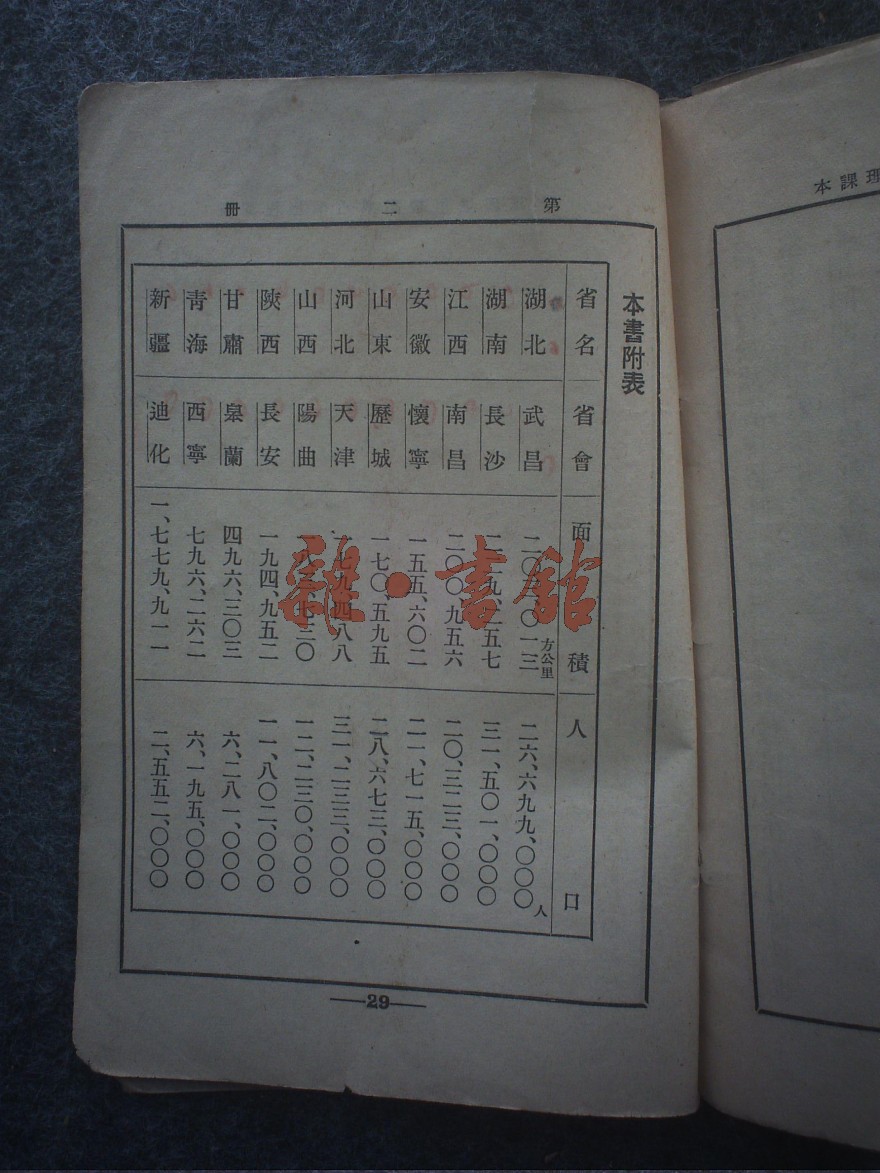 理課本
第二冊
本書附表
省名 省會 面積 人口
湖北 武昌 方公里 二六、六九九、〇〇〇人
湖南 長沙 三一、五〇一、〇〇〇
江西 南昌 二〇〇、九五六 二〇、三二三、〇〇〇
安徽 懷寧 一五五、六〇二 二一、七一五、〇〇〇
山東 歷城 一七〇、五九五 二八、六七三、〇〇〇
河北 天津 三一、二三三、〇〇〇
山西 陽曲 一二、二三〇、〇〇〇
陝西 長安 一九四、九五二 一一、八〇二、〇〇〇
甘肅 皋蘭 四九六、三〇三 六、二八一、〇〇〇
青海 西寧 七九六、二六二 六、一九五、〇〇〇
新疆 迪化 一、七七九、九一一 二、五五二、〇〇〇
29
雜·書館